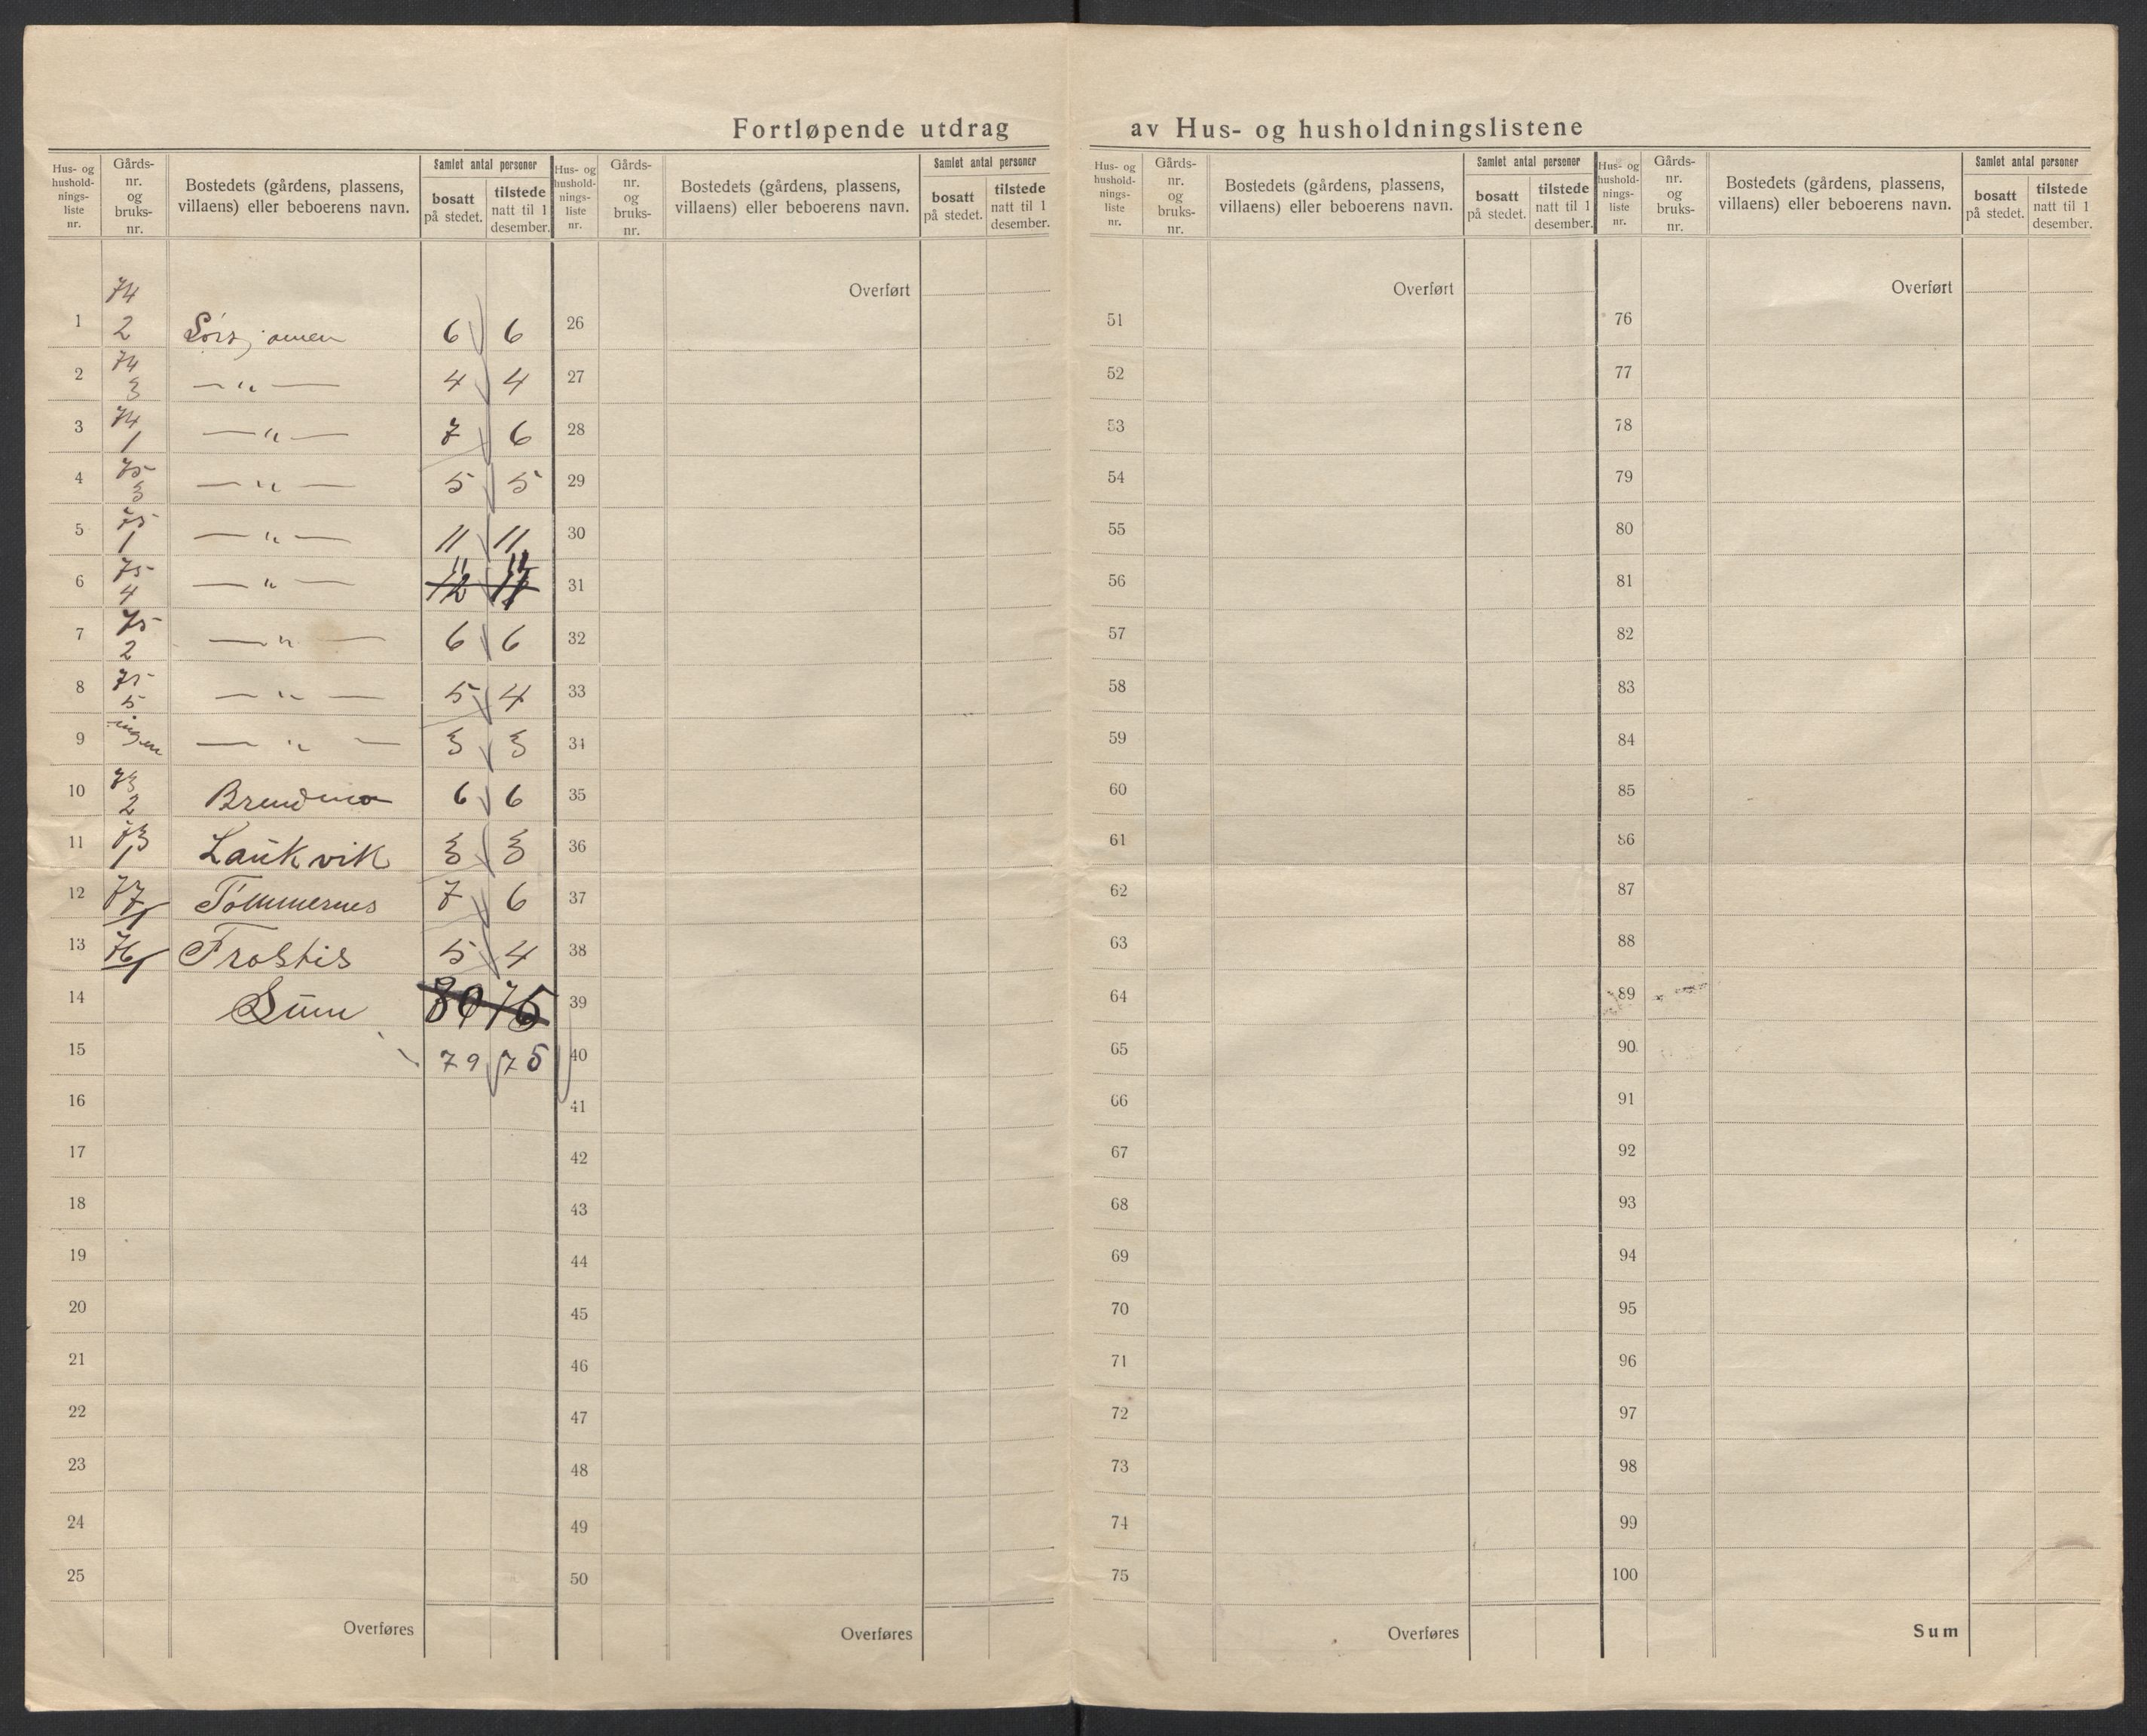 Fortløpende utdrag av Hus- og husholdningslistene
Hus- og hushold-nings-liste nr. Gårds-nr. og bruks-nr. Bostedets (gårdens, plassens, villaens) eller beboerens navn. Samlet antal personer bosatt på stedet. tilstede natt til 1 desember.
1 74 2 6 6
2 74 3 — „ — 4 4
3 74 1 — „ — 7 6
4 75 3 — „ — 5 5
5 75 1 — „ — 11 11
6 75 4 — „ — 11 11
7 75 2 — „ — 6 6
8 75 5 — „ — 5 4
9 ingen — „ — 3 3
10 73 2 Brendmo 6 6
11 73 1 Laukvik 3 3
12 77/1 Tømmernes 7 6
13 76/1 Frostis 5 4
14 Sum 80 76
15 79 75
16
17
18
19
20
21
22
23
24
25
Overføres
Hus- og hushold-nings-liste nr. Gårds-nr. og bruks-nr. Bostedets (gårdens, plassens, villaens) eller beboerens navn. Samlet antal personer bosatt på stedet. tilstede natt til 1 desember.
Overført
26
27
28
29
30
31
32
33
34
35
36
37
38
39
40
41
42
43
44
45
46
47
48
49
50
Overføres
Hus- og hushold-nings-liste nr. Gårds-nr. og bruks-nr. Bostedets (gårdens, plassens, villaens) eller beboerens navn. Samlet antal personer bosatt på stedet. tilstede natt til 1 desember.
Overført
51
52
53
54
55
56
57
58
59
60
61
62
63
64
65
66
67
68
69
70
71
72
73
74
75
Overføres
Hus- og hushold-nings-liste nr. Gårds-nr. og bruks-nr. Bostedets (gårdens, plassens, villaens) eller beboerens navn. Samlet antal personer bosatt på stedet. tilstede natt til 1 desember.
Overført
76
77
78
79
80
81
82
83
84
85
86
87
88
89
90
91
92
93
94
95
96
97
98
99
100
Sum